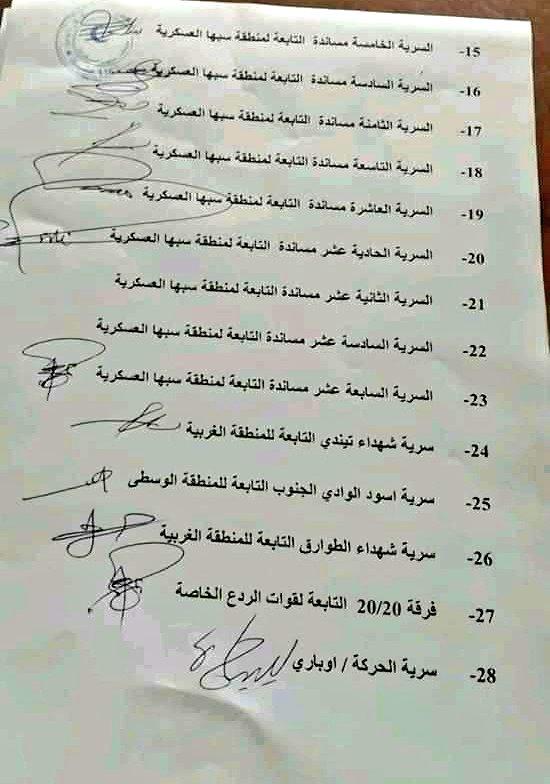 15- السرية الخامسة مساندة التابعة لمنطقة سبها العسكرية
16- السرية السادسة مساندة التابعة لمنطقة سبها العسكرية
17- السرية الثامنة مساندة التابعة لمنطقة سبها العسكرية
18- السرية التاسعة مساندة التابعة لمنطقة سبها العسكرية
19- السرية العاشرة مساندة التابعة لمنطقة سبها العسكرية
20- السرية الحادية عشر مساندة التابعة لمنطقة سبها العسكرية
21- السرية الثانية عشر مساندة التابعة لمنطقة سبها العسكرية
22- السرية السادسة عشر مساندة التابعة لمنطقة سبها العسكرية
23- السرية السابعة عشر مساندة التابعة لمنطقة سبها العسكرية
24- سرية شهداء تيندي التابعة للمنطقة الغربية
25- سرية اسود الوادي الجنوب التابعة للمنطقة الوسطى
26- سرية شهداء الطوارق التابعة للمنطقة الغربية
27- فرقة 20/20 التابعة لقوات الردع الخاصة
28- سرية الحركة / اوباري